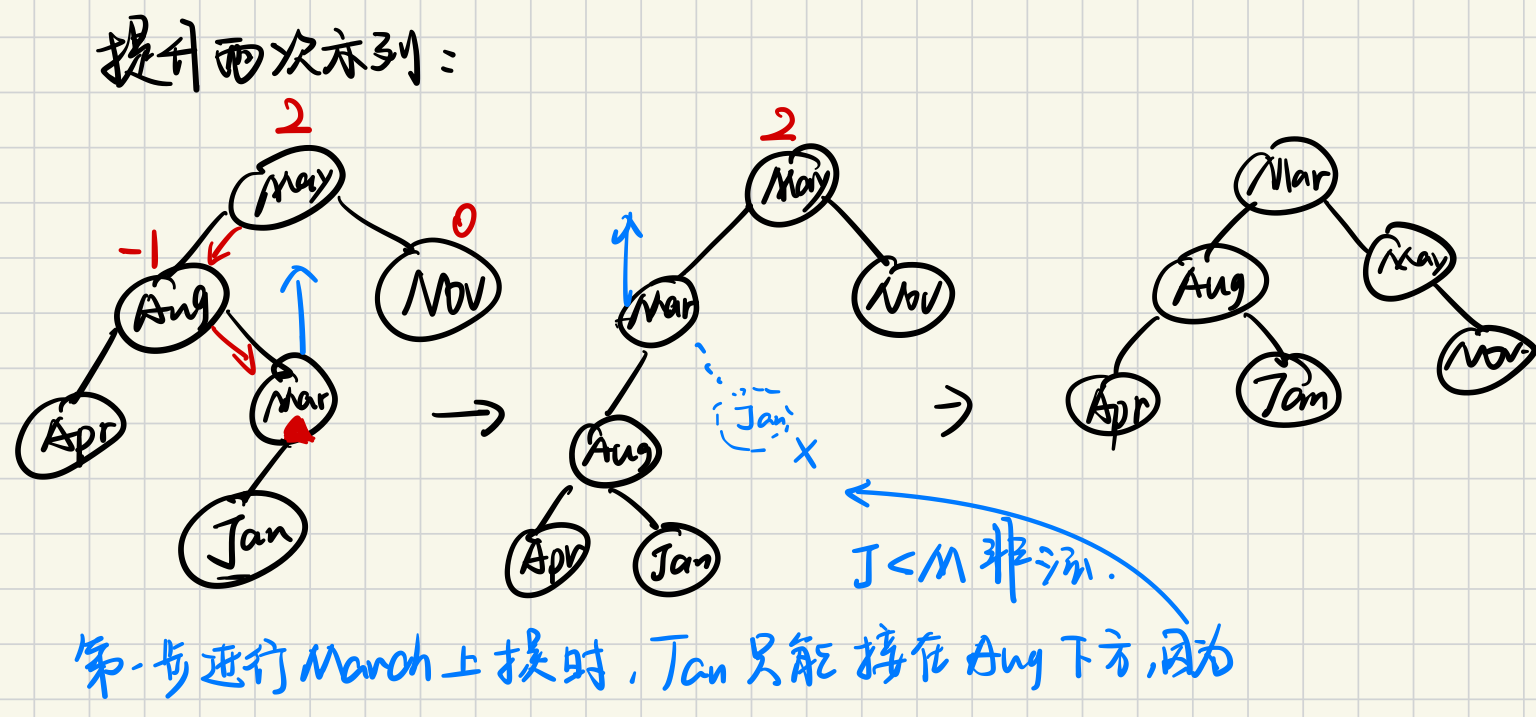 提升两次示列：
2
May
-1
0
Aug
Nov
Apr
Mar
Jan
2
May
Mar
Nov
Jan
×
Aug
Apr
Jan
Mar
Aug
May
Apr
Jan
Nov
J<M 非法.
第一步进行March上提时，Jan只能接在Aug下方，因为